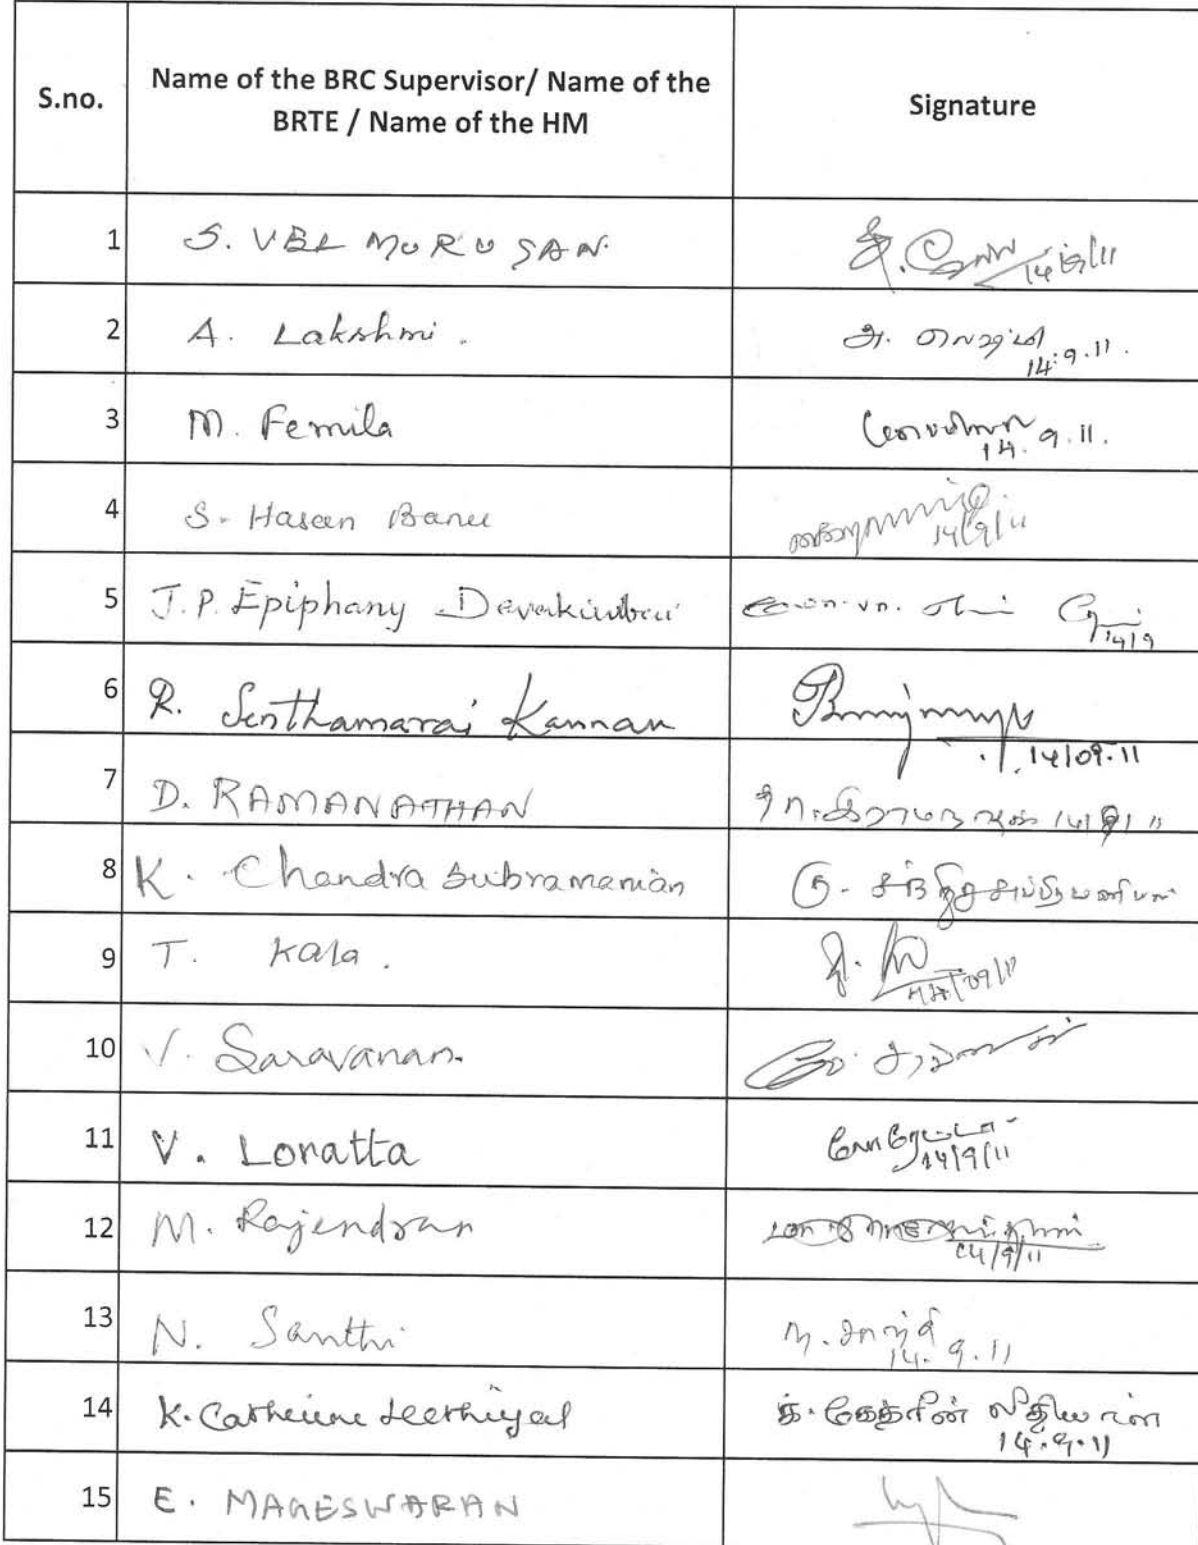 S.no. Name of the BRC Supervisor/ Name of the BRTE / Name of the HM Signature
1 S. VEL MURUGAN.
2 A. Lakshmi. அ. லெஷ்மி 14.9.11.
3 M. Femila 14.9.11.
4 S. Hasan Banu 14/9/11
5 J.P. Epiphany 14/9
6 R. Senthamarai Kannan 14/09.11
7 D. RAMANATHAN
8 K. Chandra Subramanian கு. சந்திரசுப்பிரமணியன்
9 T. Kala. தி. கலா
10 V. Saravanan. சரவணன்
11 V. Loratta லோரேட்டா 14/9/11
12 M. Rajendran 14/9/11
13 N. Santhi ந. சாந்தி 14.9.11
14 K. Catherine Leethiyal க. கேத்ரின் லீதியாள் 14.9.11
15 E. MAGESWARAN